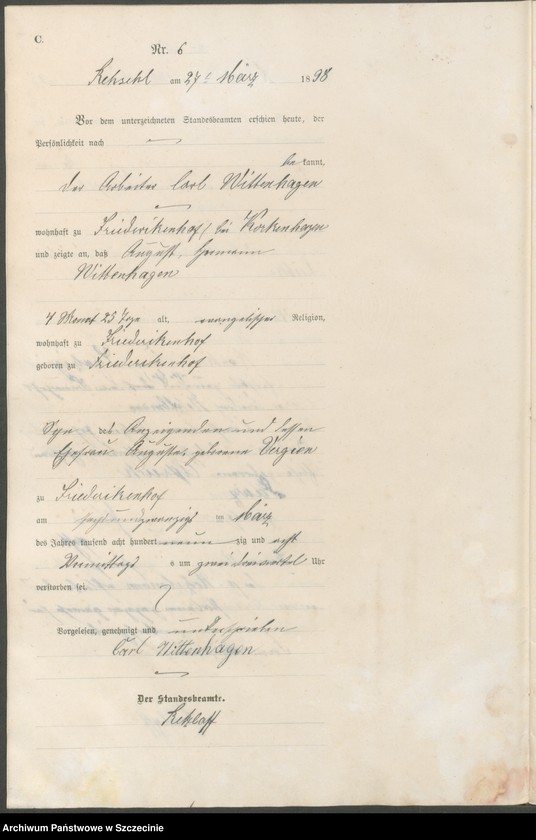 C.
Nr. 6
am 27t März 1898
Vor dem unterzeichneten Standesbeamten erschien heute, der
Persönlichkeit nach
be kannt,
der Arbeiter Carl Wittenhagen
wohnhaft zu Friederikenhof bei Korkenhagen
und zeigte an, daß August, Hermann
Wittenhagen
4 Monat 25 Tage alt, evangelischer Religion,
wohnhaft zu Friederikenhof
geboren zu Friederikenhof
Sohn des Anzeigenden und dessen
Ehefrau Auguste, geborene
zu Friederikenhof
am sechsundzwanzigsten März
des Jahres tausend acht hundert neun zig und acht
Vormittags um Uhr
verstorben sei.
Vorgelesen, genehmigt und unterschrieben
Carl Wittenhagen
Der Standesbeamte.
Archiwum Państwowe w Szczecinie